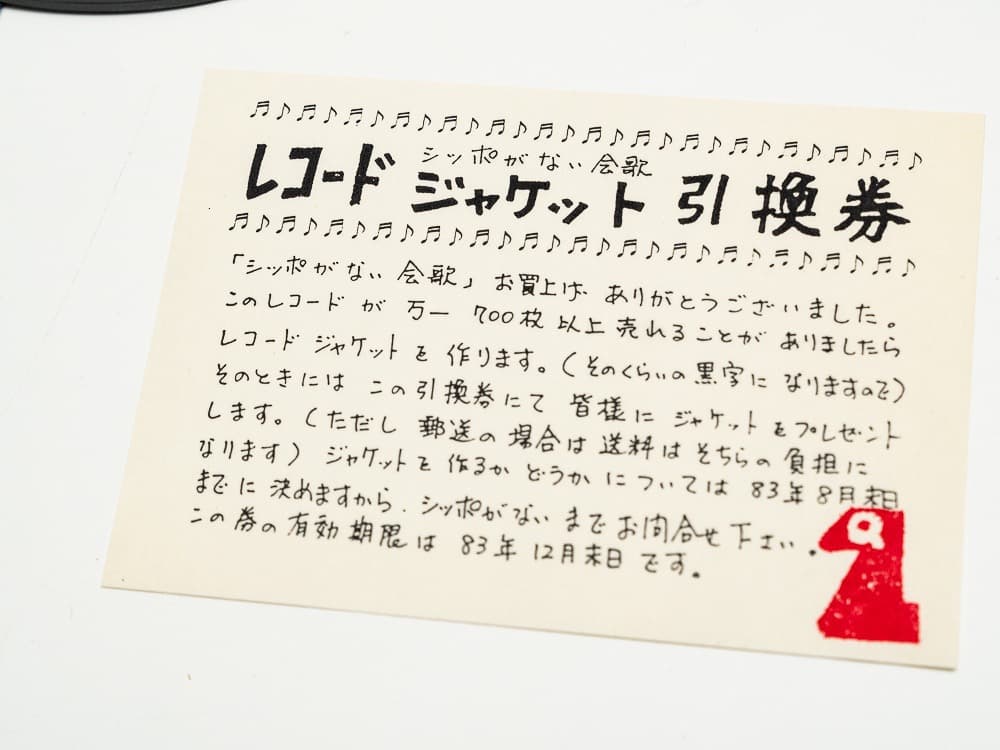 ♬♪♬♪♬♪♬♪♬♪♬♪♬♪♬♪♬♪♬♪♬♪♬♪♬♪♬♪
シッポがない会歌
レコードジャケット引換券
♬♪♬♪♬♪♬♪♬♪♬♪♬♪♬♪♬♪♬♪♬♪♬♪♬♪♬♪
「シッポがない会歌」お買上げありがとうございました。
このレコードが万一700枚以上売れることがありましたら
レコードジャケットを作ります。(そのくらいの黒字になりますので)
そのときにはこの引換券にて皆様にジャケットをプレゼント
します。(ただし郵送の場合は送料はそちらの負担に
なります)ジャケットを作るかどうかについては83年8月末日
までに決めますから、シッポがないまでお問合せ下さい。
この券の有効期限は83年12月末日です。